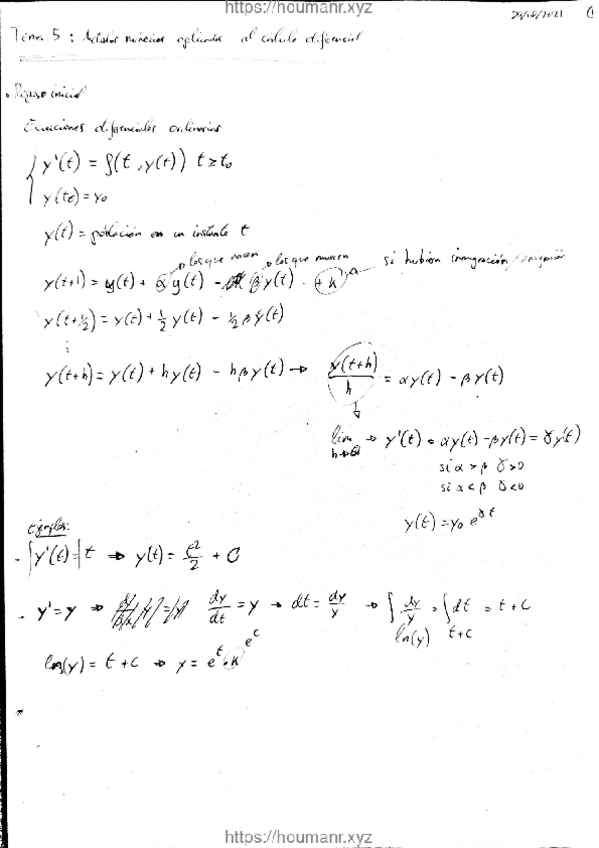 https://houmanr.xyz
Tema 5: aplicados al calculo diferencial
Repaso inicial
Ecuaciones diferenciales ordinarias
y'(t) = f(t, y(t)) t ≥ t₀
y(t₀) = y₀
y(t) = población en un instante t
los que nacen los que mueren si hubiera inmigración/
y(t+1) = y(t) + α y(t) - β y(t) + h
y(t+½) = y(t) + ½ y(t) - ½ β y(t)
⋮
y(t+h) = y(t) + h y(t) - h β y(t) → y(t+h)/h = α y(t) - β y(t)
lim h→0 → y'(t) = α y(t) - β y(t) = γ y(t)
si α > β γ > 0
si α < β γ < 0
y(t) = y₀ e^γt
Ejemplos:
y'(t) = t ⇒ y(t) = t²/2 + C
y' = y ⇒ dy/dt = y → dt = dy/y → ∫ dy/y = ∫ dt = t + C
ln(y) t + C
log(y) = t + C ⇒ y = e^t · K e^C
https://houmanr.xyz